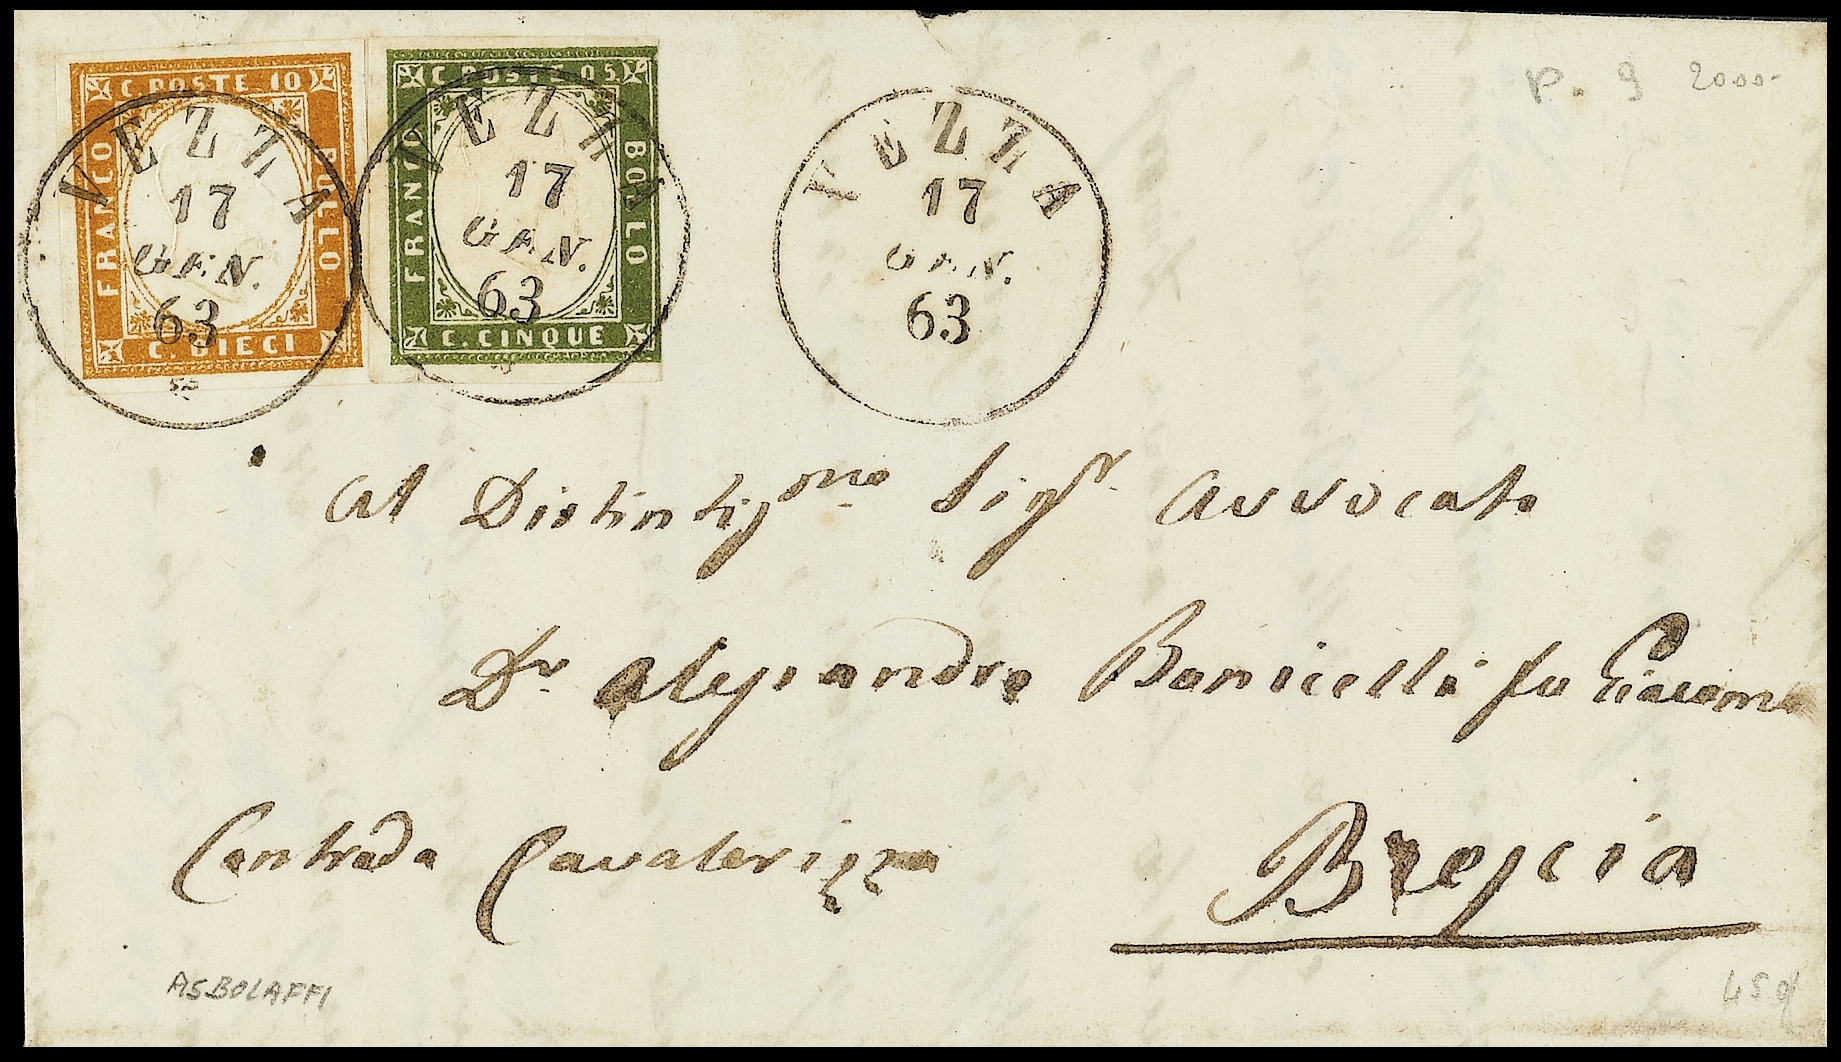 C. POSTE 10
FRANCO
BOLLO
C. DIECI
C. POSTE 05
FRANCO
BOLLO
C. CINQUE
VEZZA
17
GEN.
63
VEZZA
17
GEN.
63
VEZZA
17
GEN.
63
P. 9 2000-
Al Distintissmo Sigr Avvocato
Dr Alessandro Bonicelli fu Giacomo
Contrada Cavalerizza
Brescia
ASBOLAFFI